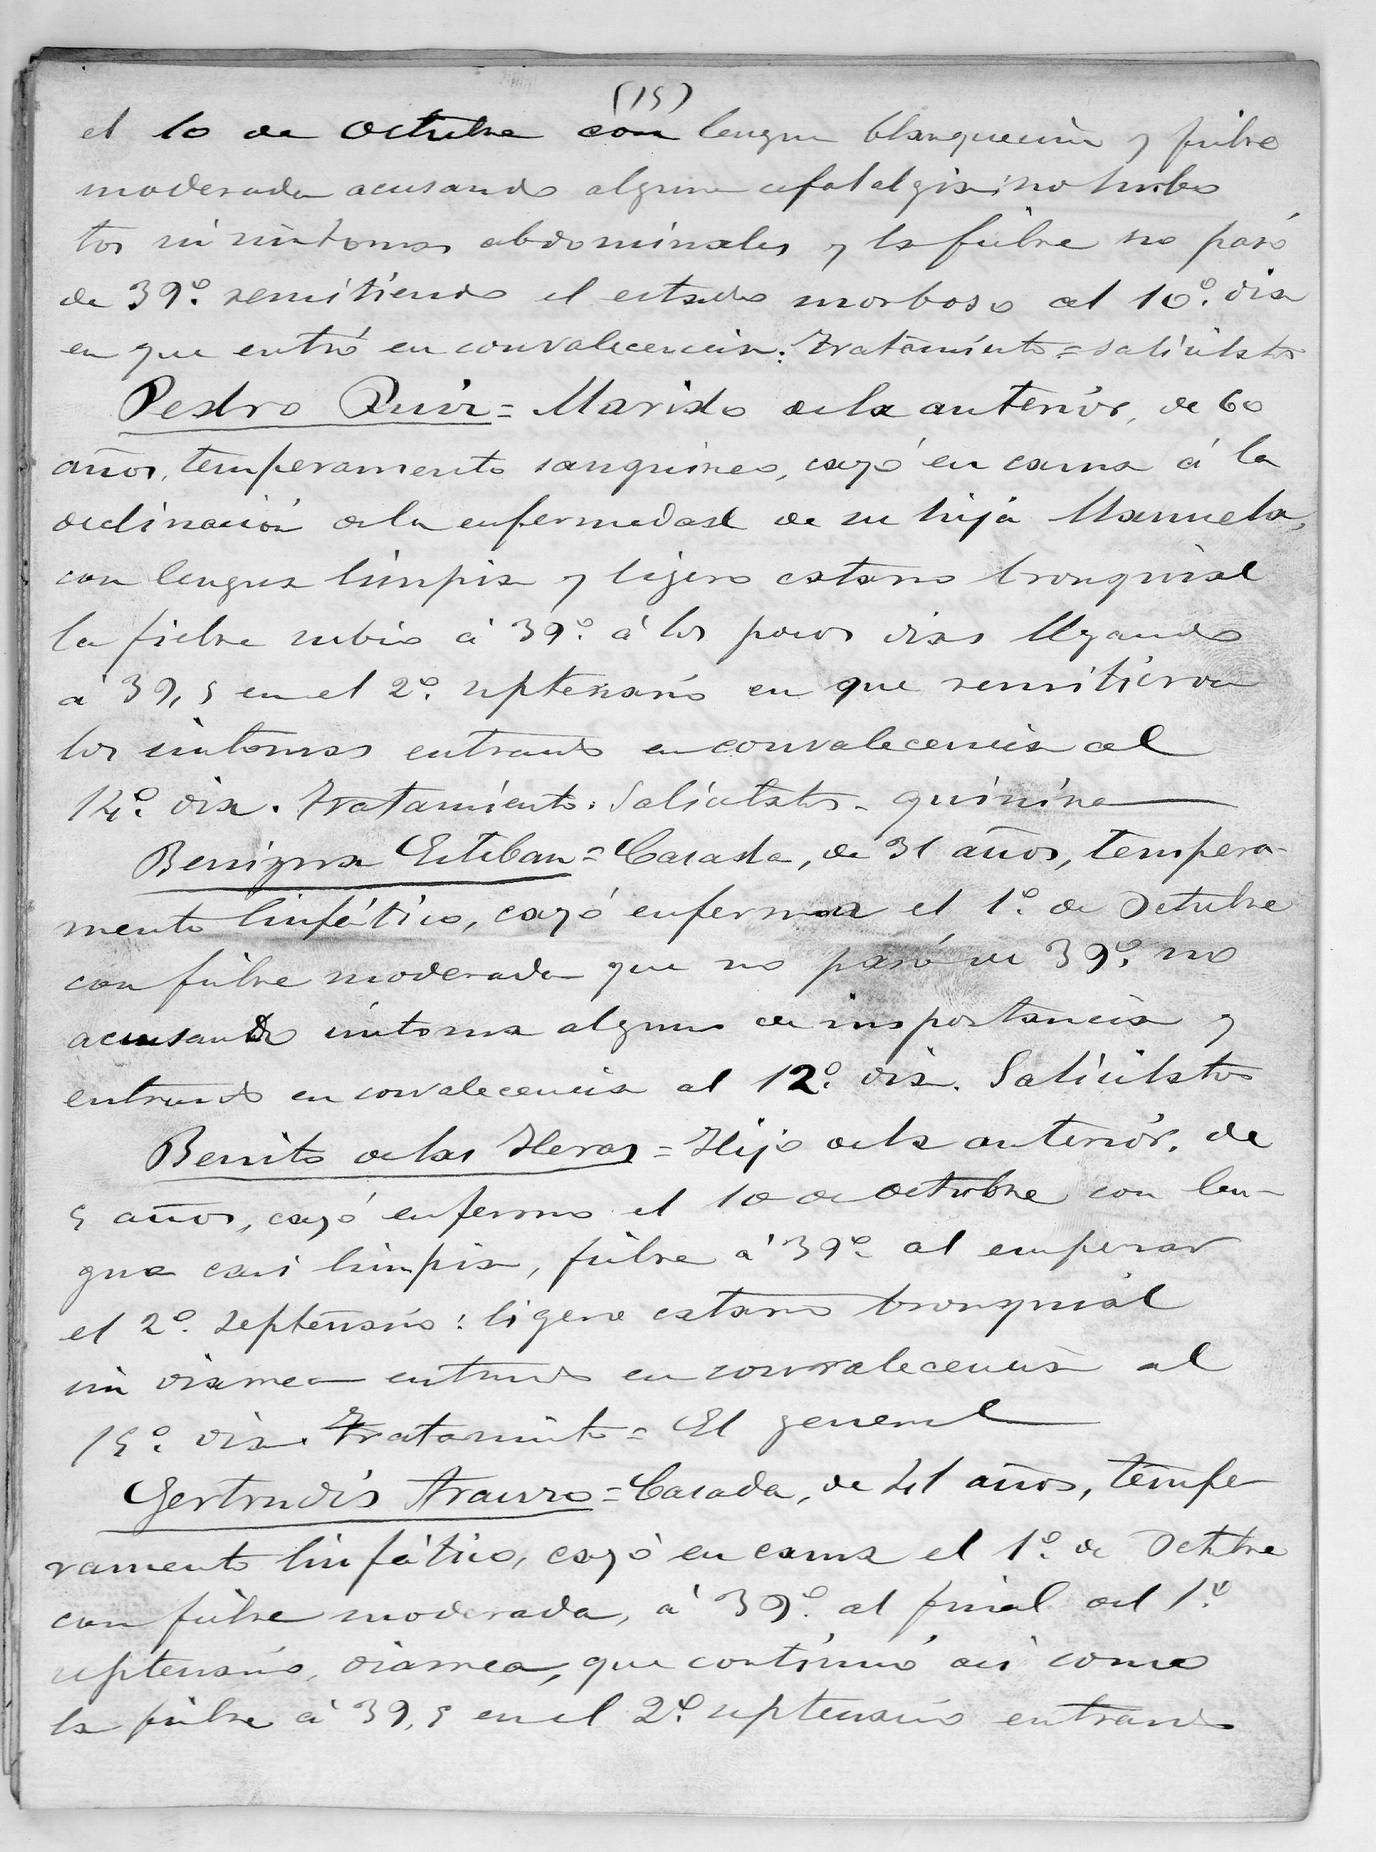 (15)
el 10 de Octubre con lengua blanquecina y fiebre
moderada acusando alguna cefalalgia: no hubo
tos ni sintomas abdominales y la fiebre no pasó
de 39º. remitiendo el estado morboso al 10º. dia
en que entró en convalecencia: Tratamiento = salicilatos
Pedro Ruiz = Marido de la anterior, de 60
años, temperamento sanguineo, cayó en cama á la
declinación de la enfermedad de su hija Manuela,
con lengua limpia y ligero catarro bronquial
la fiebre subió á 39º. á los pocos dias llegando
á 39,5 en el 2º. septenario en que remitieron
los sintomas entrando en convalecencia al
14º. dia. Tratamiento: Salicilatos - quinina
Benigna Esteban = Casada, de 31 años, tempera-
mento linfático, cayó enferma el 1º. de Octubre
con fiebre moderada que no pasó de 39º. no
acusando sintoma alguno de importancia y
entrando en convalecencia al 12º. dia. Salicilatos
Benito de las Heras = Hijo de la anterior, de
5 años, cayó enfermo el 10 de octubre con len-
gua casi limpia, fiebre á 39º. al empezar
el 2º. septenario: ligero catarro bronquial
sin diarrea entrando en convalecencia al
15º. dia. Tratamiento = El general
Gertrudis Arauzo = Casada, de 41 años, tempe
ramento linfático, cayó en cama el 1º. de Octubre
con fiebre moderada, á 39º. al final del 1º.
septenario, diarrea, que continuó asi como
la fiebre á 39,5 en el 2º. septenario entrando